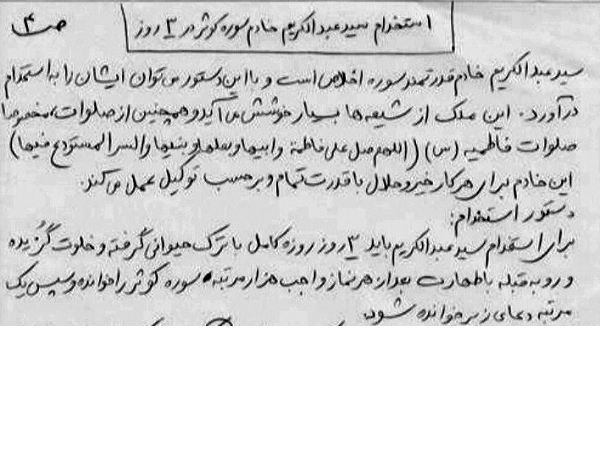 ص ۴
استخدام سید عبدالکریم خادم سوره کوثر در ۳ روز
سید عبدالکریم خادم قدرتمند سوره اخلاص است و با این دستور می‌توان ایشان را به استخدام
درآورد. این ملک از شیعه‌ها بسیار خوشش می‌آید و همچنین از صلوات، مخصوصا
صلوات فاطمیه (س) (اللهم صل علی فاطمة و ابیها و بعلها و بنیها والسر المستودع فیها)
این خادم برای هر کار خیر و حلال با قدرت تمام و بر حسب توکیل عمل می‌کند.
دستور استخدام:
برای استخدام سید عبدالکریم باید ۳ روز روزه کامل با ترک حیوانی گرفته و خلوت گُزیده
و رو به قبله با طهارت بعد از هر نماز واجب هزار مرتبه سوره کوثر را خوانده و سپس یک
مرتبه دعای زیر خوانده شود.